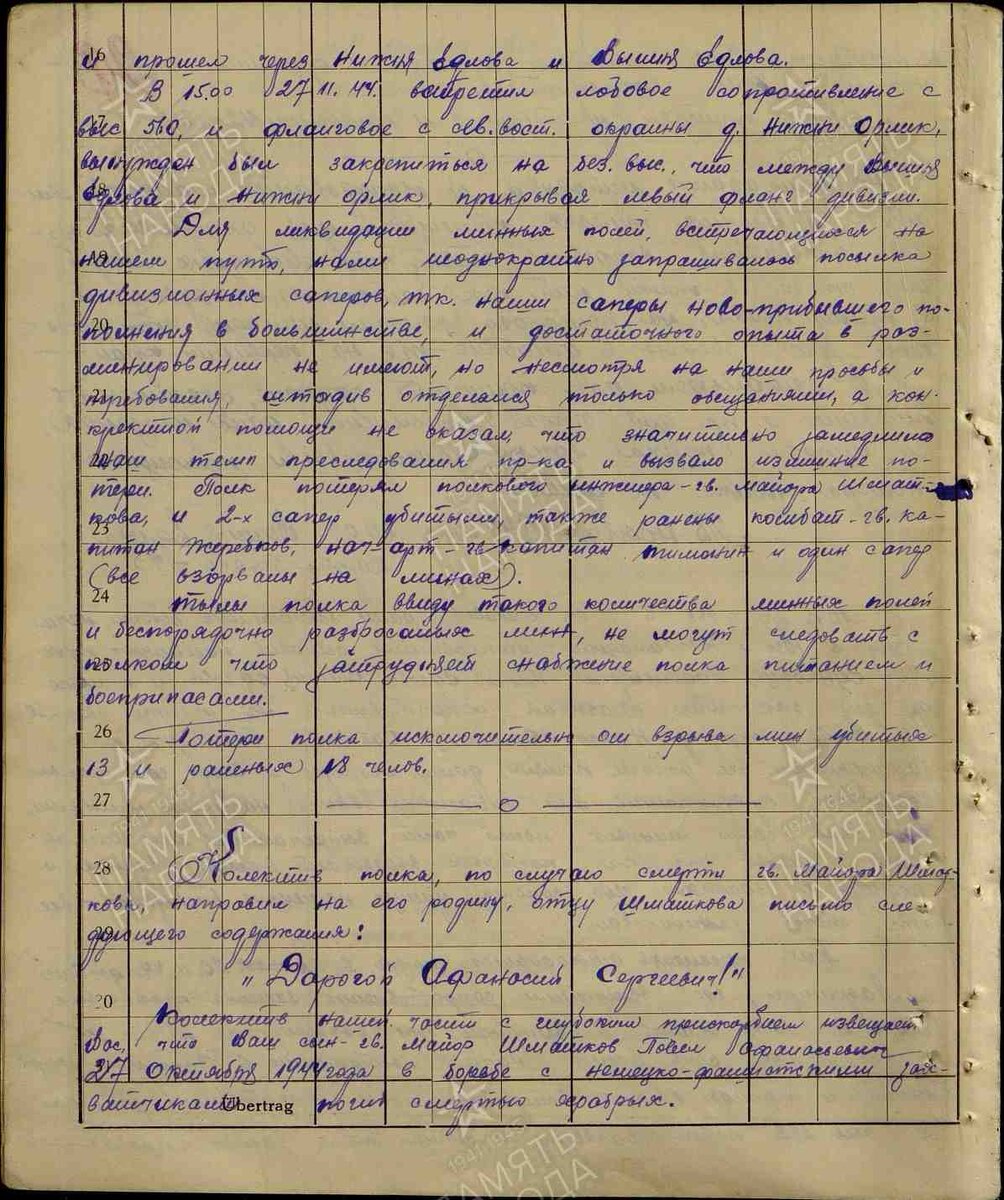 16 и прошел через Нижня Едлова и Вышня Едлова.
В 15.00 27.11.44. встретил лобовое сопротивление с
17 выс 560, и фланговое с сев.вост. окраины д. Нижни Орлик,
вынужден был закрепиться на без. выс., что между Вышня
18 Едлова и Нижни Орлик, прикрывая левый фланг дивизии.
Для ликвидации минных полей, встречающихся на
19 нашем пути, нами неоднократно запрашивалось посылка
дивизионных саперов, т.к. наши саперы ново-прибывшего по-
20 полнения в большинстве, и достаточного опыта в раз-
минировании не имеют, но несмотря на наши просьбы и
21 требования, штадив отделался только обещаниями, а кон-
кректной помощи не оказал, что значительно замедлило
22 наш темп преследования пр-ка и вызвало излишние по-
тери. Полк потерял полкового инженера - гв. майора Шмат-
23 кова, и 2-х сапер убитыми, также ранены комбат - гв. ка-
питан Жеребков, нач-арт - гв капитан Тимонин и один сапер
(все взорваны на минах).
24 Тылы полка ввиду такого количества минных полей
и беспорядочно разбросанных мин, не могут следовать с
25 полком что затрудняет снабжение полка питанием и
боеприпасами.
26 Потери полка исключительно от взрыва мин убитых
13 и раненых 18 челов.
27
28 Колектив полка, по случаю смерти гв. Майора Шмат-
кова, направил на его родину, отцу Шматкова письмо сле-
29 дующего содержания:
„Дорогой Афанасий Сергеевич!"
30 Колектив нашей части с глубоким прискорбием извещает
Вас, что Ваш сын - гв. Майор Шматков Павел Афанасьевич
27 Октября 1944 года в борьбе с немецко-фашистскими зах-
ватчиками погиб смертью храбрых.
Übertrag
ПАМЯТЬ НАРОДА
1941-1945